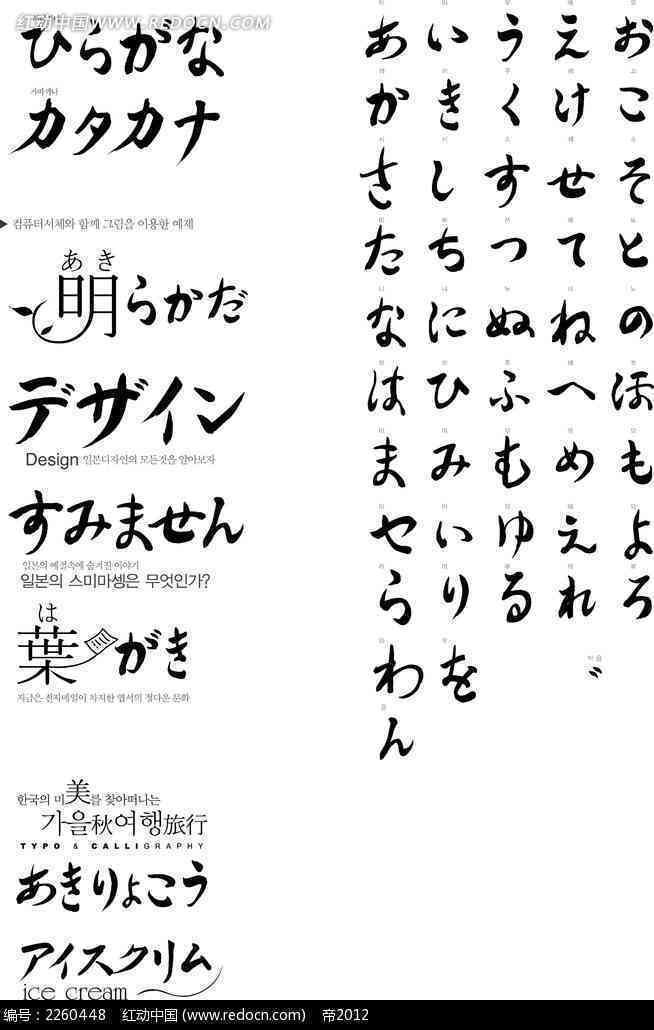 红动中国 WWW.REDOCN.COM
ひらがな
カタカナ
▶ 컴퓨터서체와 함께 그림을 이용한 예제
あき
明らかだ
デザイン
Design 일본디자인의 모든것을 알아보자
すみません
일본의 예절속에 숨겨진 이야기
일본의 스미마셍은 무엇인가?
は
葉がき
지금은 전자메일이 차지한 엽서의 정다운 문화
한국의 미美를 찾아떠나는
가을秋여행旅行
TYPO & CALLIGRAPHY
あきりょこう
アイスクリム
ice cream
あ い う え お
か き く け こ
さ し す せ そ
た ち つ て と
な に ぬ ね の
は ひ ふ へ ほ
ま み む め も
や い ゆ え よ
ら り る れ ろ
わ を ゛
ん
编号：2260448 红动中国 (www.redocn.com) 帝2012